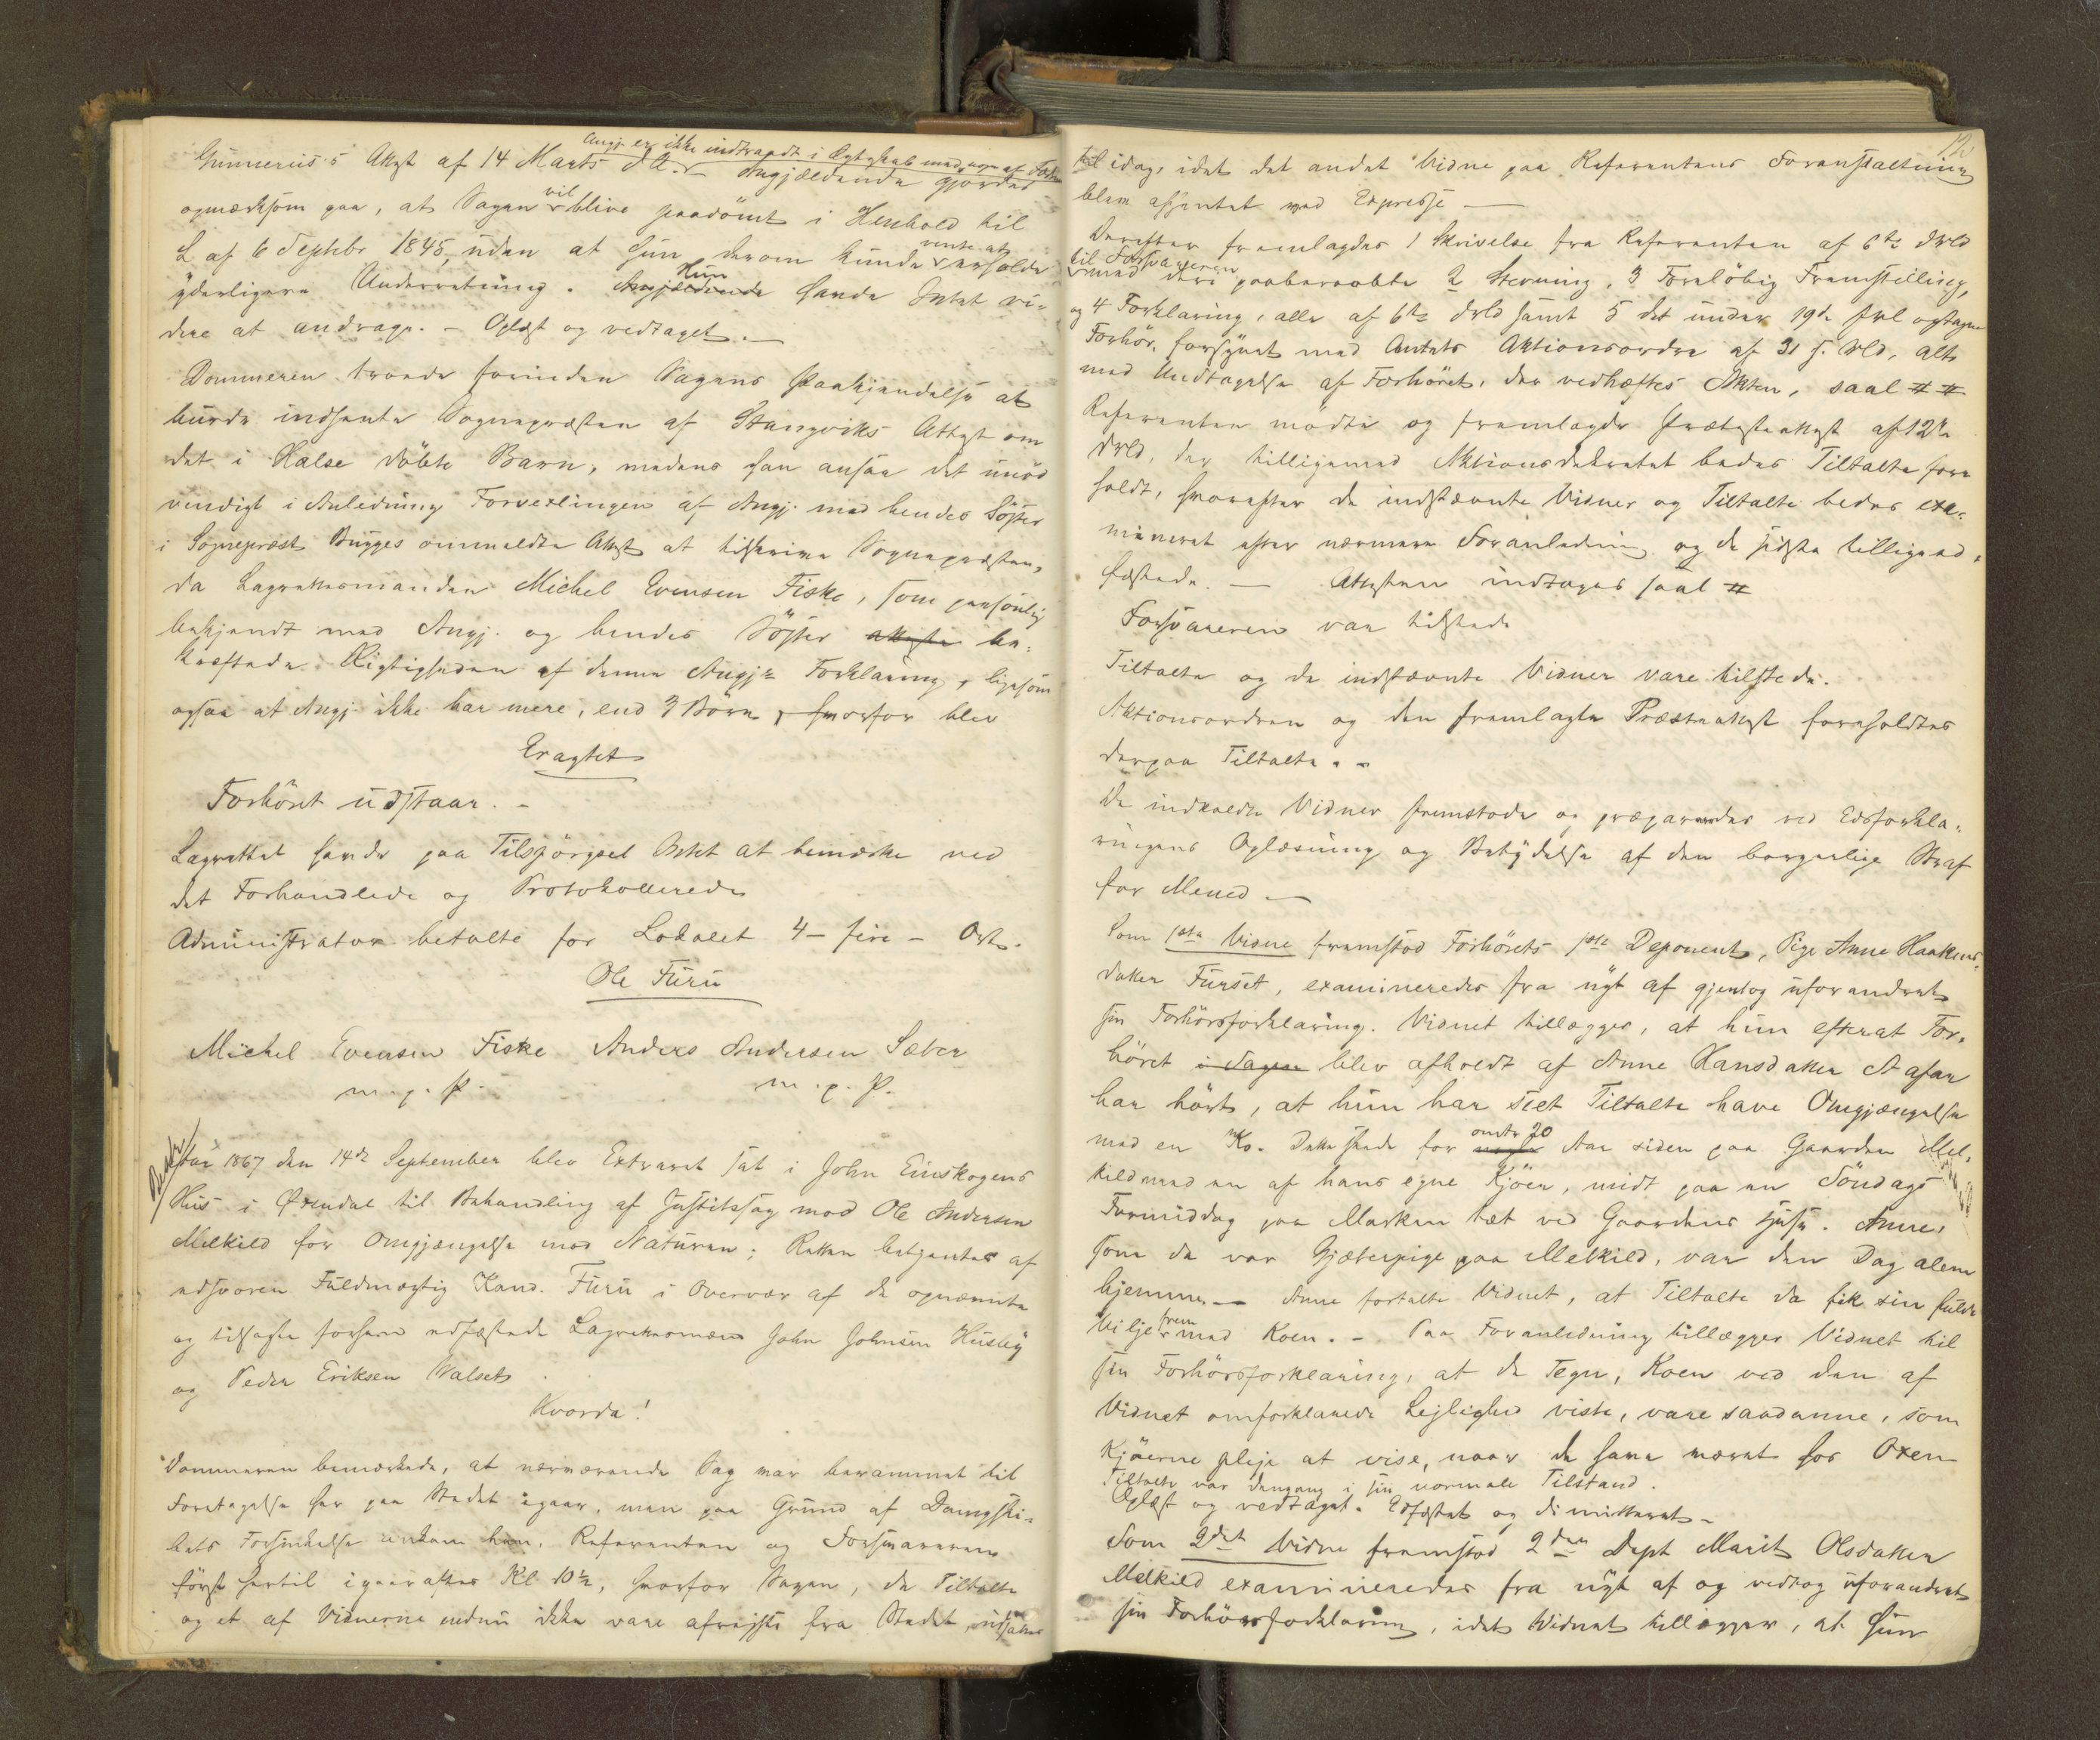 Angj. er ikke indtraadt i Ægteskab med nogen af Fædrene
Gunnerus's Attest af 14 Marts d. A. Angjældende gjordes
opmærksom paa, at Sagen vil blive paadømt i Henhold til
L af 6 Septbr 1845, uden at hun derom kunde vente at erholde
yderligere Underretning. Angjældende Hun havde Intet vi-
dere at andrage. - Oplæst og vedtaget. -
Dommeren troede forinden Sagens Paakjendelse at
burde indhente Sognepræsten af Stangviks Attest om
det i Halse döbte Barn, medens han ansaa det unød
vendigt i Anledning Forvexlingen af Angj. med hendes Söster
i Sognepræst Bugges ommeldte Attest at tilskrive Sognepræsten,
da Lagrettesmanden Michel Evensen Fiske, som personlig
bekjendt med Angj. og hendes Söster attesta be-
kræftede Rigtigheden af denne Angj.s Forklaring, ligesom
ogsaa at Angj. ikke har mere, end 3 Börn, hvorfor blev
Eragtet
Forhöret udstaar. -
Lagrettet havde paa Tilspörgsel Intet at bemærke ved
det Forhandlede og Protokollerede
Administrator betalte for Lokalet 4 - fire - Ort.
Ole Furu
Michel Evensen Fiske Anders Andersen Sæter
m. p. P. m. p. P.
Aar 1867 den 14de September blev Extraret sat i John Einskogens
Hus i Øxendal til Behandling af Justitssag mod Ole Andersen
Melkild for Omgjængelse mod Naturen; Retten betjentes af
edsvoren Fuldmægtig Kand. Furu i Overvær af de opnævnte
og tilsagte forhen edfæstede Lagrettesmænd John Johnsen Husby
og Peder Eriksen Valset
Hvorda!
Dommeren bemærkede, at nærværende Sag var berammet til
Foretagelse her paa Stedet igaar, men paa Grund af Dampski-
bets Forsinkelse ankom han, Referenten og Forsvareren
først hertil igaar aftes Kl 10½, hvorfor Sagen, da Tiltalte
og et af Vidnerne endnu ikke vare afreiste fra Stedet, udsattes
til idag, idet det andet Vidne paa Referentens Foranstaltning
blev afhentet med Expresse -
Derefter fremlagdes 1 Skrivelse fra Referenten af 6te dsld
til Forsvareren med deri paaberaabte 2 Stevning, 3 Foreløbig Fremstilling,
og 4 Forklaring, alle af 6te dsld samt 5 det under 19de f.M. optagne
Forhör, forsynet med Amtets Aktionsordre af 31 f. Md, alt
med Undtagelse af Forhöret, der vedhæftes Akten, saal # #
Referenten mödte og fremlagde Præsteattest af 12te
dsld, der tilligemed Aktionsdekretet bedes Tiltalte fore
holdt, hvorefter de indstævnte Vidner og Tiltalte bedes exa-
mineret efter nærmere Foranledning og de første tillige ed-
fæstede. - Attesten indtages saal #
Forsvareren var tilstede
Tiltalte og de indstævnte Vidner vare tilstede.
Aktionsordren og den fremlagte Præsteattest foreholdtes
derpaa Tiltalte. -
De indkaldte Vidner fremstode og præpareredes ved Edsforkla-
ringens Oplæsning og Betydelse af den borgerlige Straf
for Mened -
Som 1ste Vidne fremstod Forhörets 1ste Deponent, Pige Anne Haakens-
datter Furset, examineredes fra nyt af gjentog uforandret
sin Forhörsforklaring. Vidnet tillægger, at hun efterat For-
höret i Sagen blev afholdt af Anne Hansdatter
har hört, at hun har seet Tiltalte have Omgjængelse
med en Ko. Dette skede for nogle omtr 20 Aar siden paa Gaarden Mel-
kild med en af hans egne Kjöer, midt paa en Söndags
Formiddag paa Marken tæt ved Gaardens Huse. Anne,
som da var Gjæterpige paa Melkild, var den Dag alene
hjemme. - Anne fortalte Vidnet, at Tiltalte da fik sin fulde
Vilje frem med Koen. - Paa Foranledning tillægger Vidnet til
sin Forhörsforklaring, at de Tegn, Koen ved den af
Vidnet omforklarede Lejlighed viste, vare saadanne, som
Kjöerne pleje at vise, naar de have været hos Oxen
Tiltalte var dengang i sin normale Tilstand.
Oplæst og vedtaget. Edfæstet og dimitteret. -
Som 2det Vidne fremstod 2den Dept Marit Olsdatter
Melkild examineredes fra nyt af og vedtog uforandret
sin Forhörsforklaring, idet Vidnet tillægger, at hun